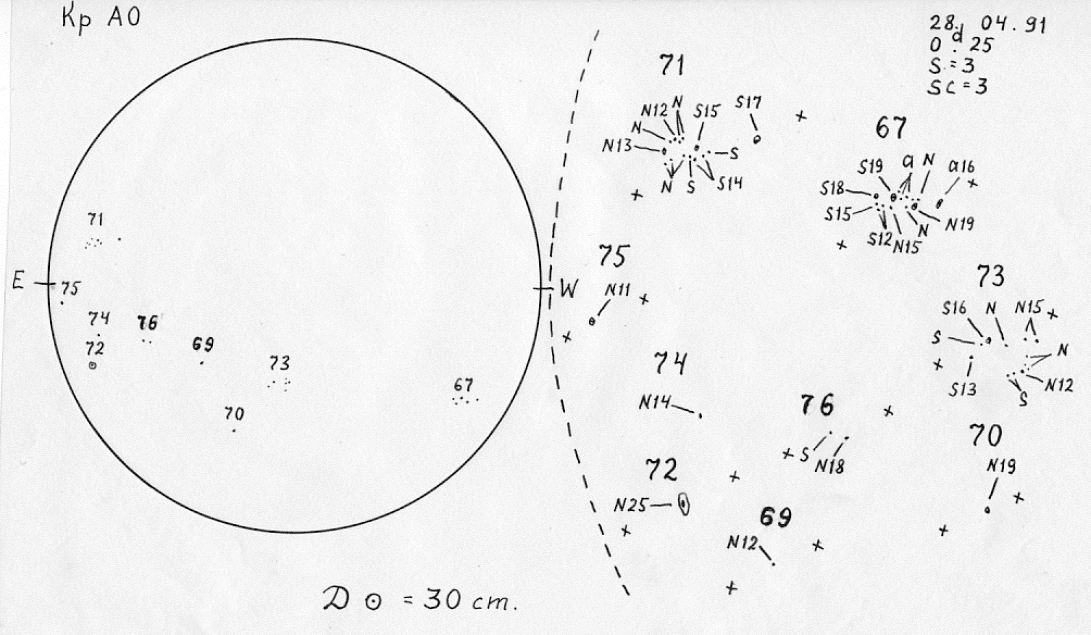 Кр АО
28. 04. 91
d
0 . 25
S = 3
Sc = 3
71
N12 N
S15
S17
N
N13
S
N S
S14
67
S19
a N
a16
S18
S15
S12
N15
N
N19
71
E
75
W
74
76
72
69
73
67
70
75
N11
73
S16
N
N15
S
N
S13
S
N12
74
N14
76
S
N18
70
N19
72
N25
69
N12
D ⊙ = 30 cm.